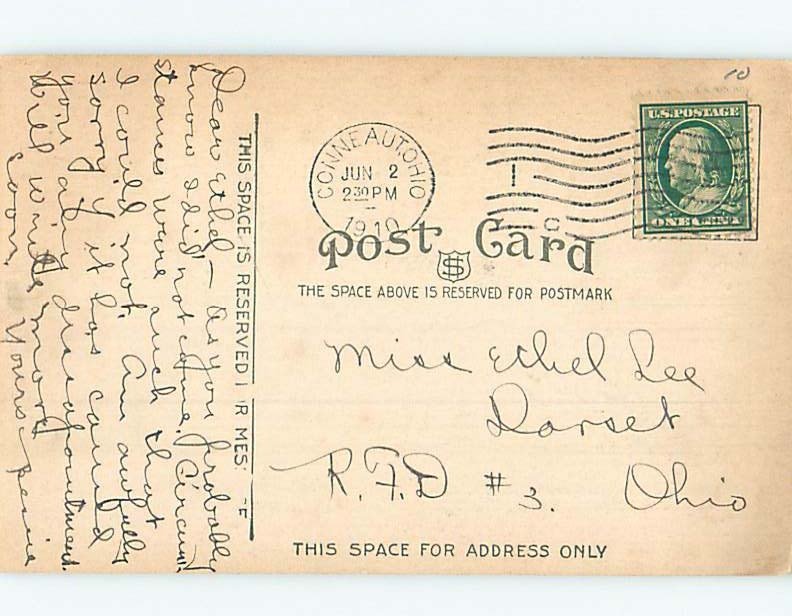 Dear Ethel — As you probably
know I did not come. Circum
stances were such that
I could not. Am awfully
sorry if it has caused
you any disappointment.
Will write more
soon. Yours Bessie
THIS SPACE IS RESERVED F R MES
10
CONNEAUT, OHIO
JUN 2
2 30 PM
1910
U.S. POSTAGE
ONE CENT
1
C
Post Card
THE SPACE ABOVE IS RESERVED FOR POSTMARK
Miss Ethel Lee
Dorset
R.F.D #3. Ohio
THIS SPACE FOR ADDRESS ONLY